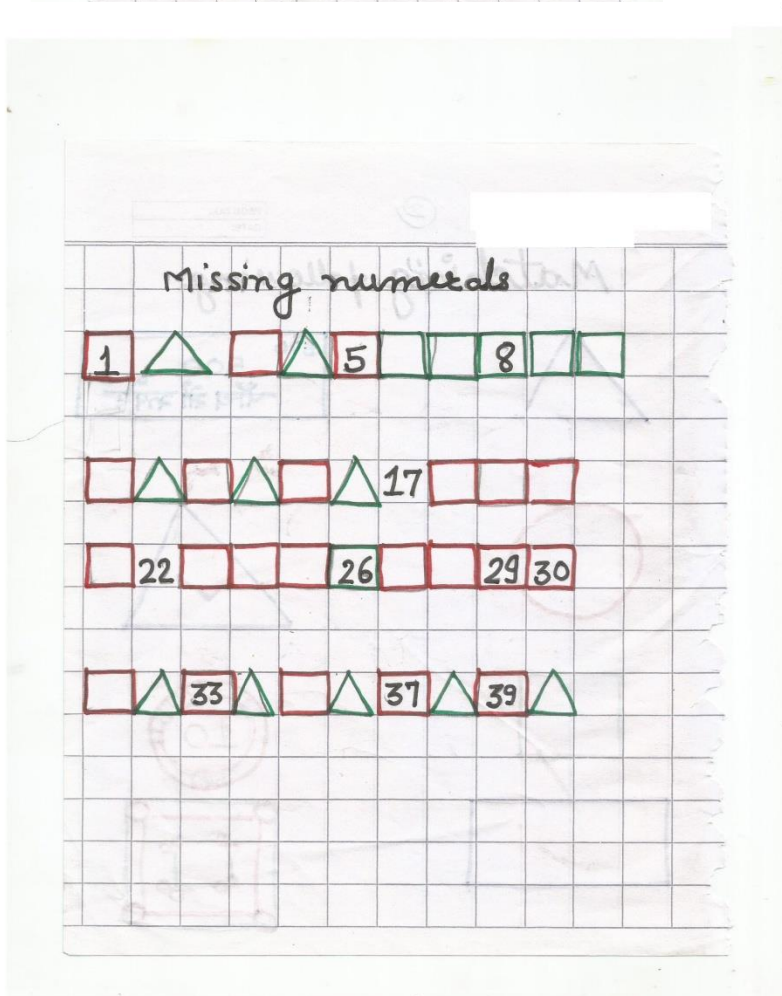 Missing numerals
1 5 8
17
22 26 29 30
33 37 39